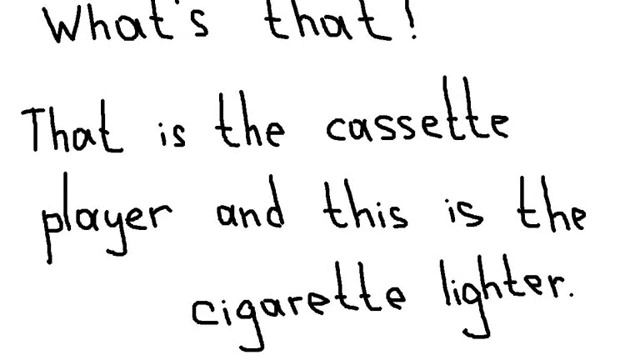 What's that!
That is the cassette
player and this is the
cigarette lighter.